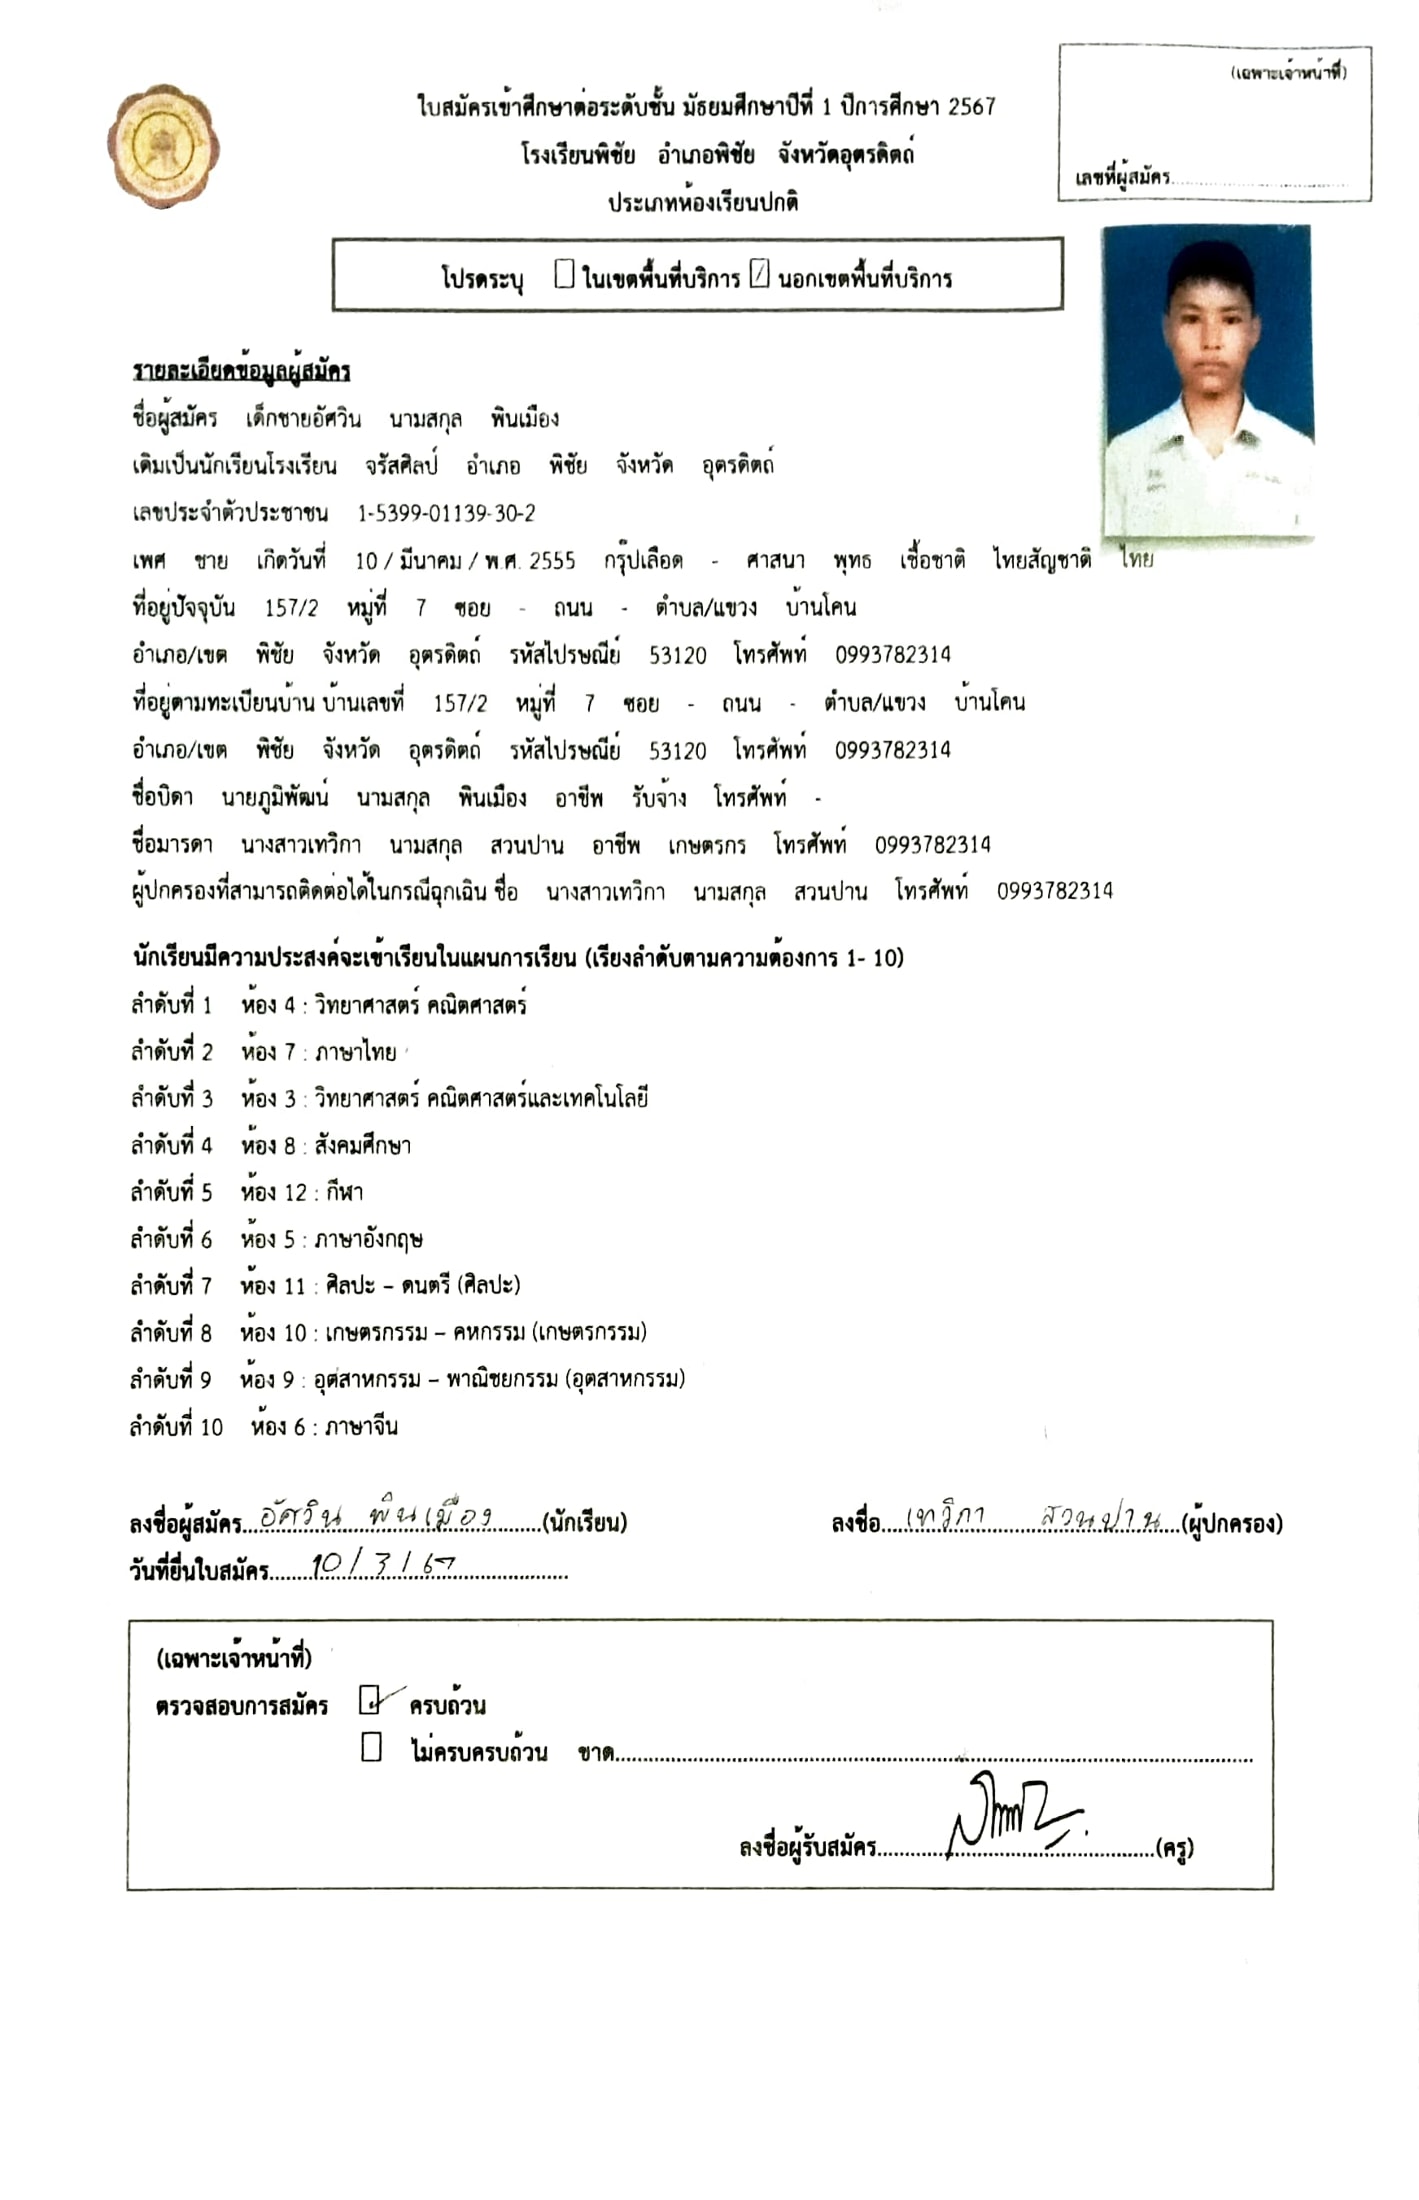 (เฉพาะเจ้าหน้าที่)
เลขที่ผู้สมัคร
ใบสมัครเข้าศึกษาต่อระดับชั้น มัธยมศึกษาปีที่ 1 ปีการศึกษา 2567
โรงเรียนพิชัย อำเภอพิชัย จังหวัดอุตรดิตถ์
ประเภทห้องเรียนปกติ
โปรดระบุ ในเขตพื้นที่บริการ / นอกเขตพื้นที่บริการ
รายละเอียดข้อมูลผู้สมัคร
ชื่อผู้สมัคร เด็กชายอัศวิน นามสกุล พินเมือง
เดิมเป็นนักเรียนโรงเรียน จรัสศิลป์ อำเภอ พิชัย จังหวัด อุตรดิตถ์
เลขประจำตัวประชาชน 1-5399-01139-30-2
เพศ ชาย เกิดวันที่ 10 / มีนาคม / พ.ศ. 2555 กรุ๊ปเลือด - ศาสนา พุทธ เชื้อชาติ ไทยสัญชาติ ไทย
ที่อยู่ปัจจุบัน 157/2 หมู่ที่ 7 ซอย - ถนน - ตำบล/แขวง บ้านโคน
อำเภอ/เขต พิชัย จังหวัด อุตรดิตถ์ รหัสไปรษณีย์ 53120 โทรศัพท์ 0993782314
ที่อยู่ตามทะเบียนบ้าน บ้านเลขที่ 157/2 หมู่ที่ 7 ซอย - ถนน - ตำบล/แขวง บ้านโคน
อำเภอ/เขต พิชัย จังหวัด อุตรดิตถ์ รหัสไปรษณีย์ 53120 โทรศัพท์ 0993782314
ชื่อบิดา นายภูมิพัฒน์ นามสกุล พินเมือง อาชีพ รับจ้าง โทรศัพท์ -
ชื่อมารดา นางสาวเทวิกา นามสกุล สวนปาน อาชีพ เกษตรกร โทรศัพท์ 0993782314
ผู้ปกครองที่สามารถติดต่อได้ในกรณีฉุกเฉิน ชื่อ นางสาวเทวิกา นามสกุล สวนปาน โทรศัพท์ 0993782314
นักเรียนมีความประสงค์จะเข้าเรียนในแผนการเรียน (เรียงลำดับตามความต้องการ 1- 10)
ลำดับที่ 1 ห้อง 4 : วิทยาศาสตร์ คณิตศาสตร์
ลำดับที่ 2 ห้อง 7 : ภาษาไทย
ลำดับที่ 3 ห้อง 3 : วิทยาศาสตร์ คณิตศาสตร์และเทคโนโลยี
ลำดับที่ 4 ห้อง 8 : สังคมศึกษา
ลำดับที่ 5 ห้อง 12 : กีฬา
ลำดับที่ 6 ห้อง 5 : ภาษาอังกฤษ
ลำดับที่ 7 ห้อง 11 : ศิลปะ – ดนตรี (ศิลปะ)
ลำดับที่ 8 ห้อง 10 : เกษตรกรรม – คหกรรม (เกษตรกรรม)
ลำดับที่ 9 ห้อง 9 : อุตสาหกรรม – พาณิชยกรรม (อุตสาหกรรม)
ลำดับที่ 10 ห้อง 6 : ภาษาจีน
ลงชื่อผู้สมัคร อัศวิน พินเมือง (นักเรียน) ลงชื่อ เทวิกา สวนปาน (ผู้ปกครอง)
วันที่ยื่นใบสมัคร 10/3/67
(เฉพาะเจ้าหน้าที่)
ตรวจสอบการสมัคร ครบถ้วน
ไม่ครบครบถ้วน ขาด
ลงชื่อผู้รับสมัคร (ครู)